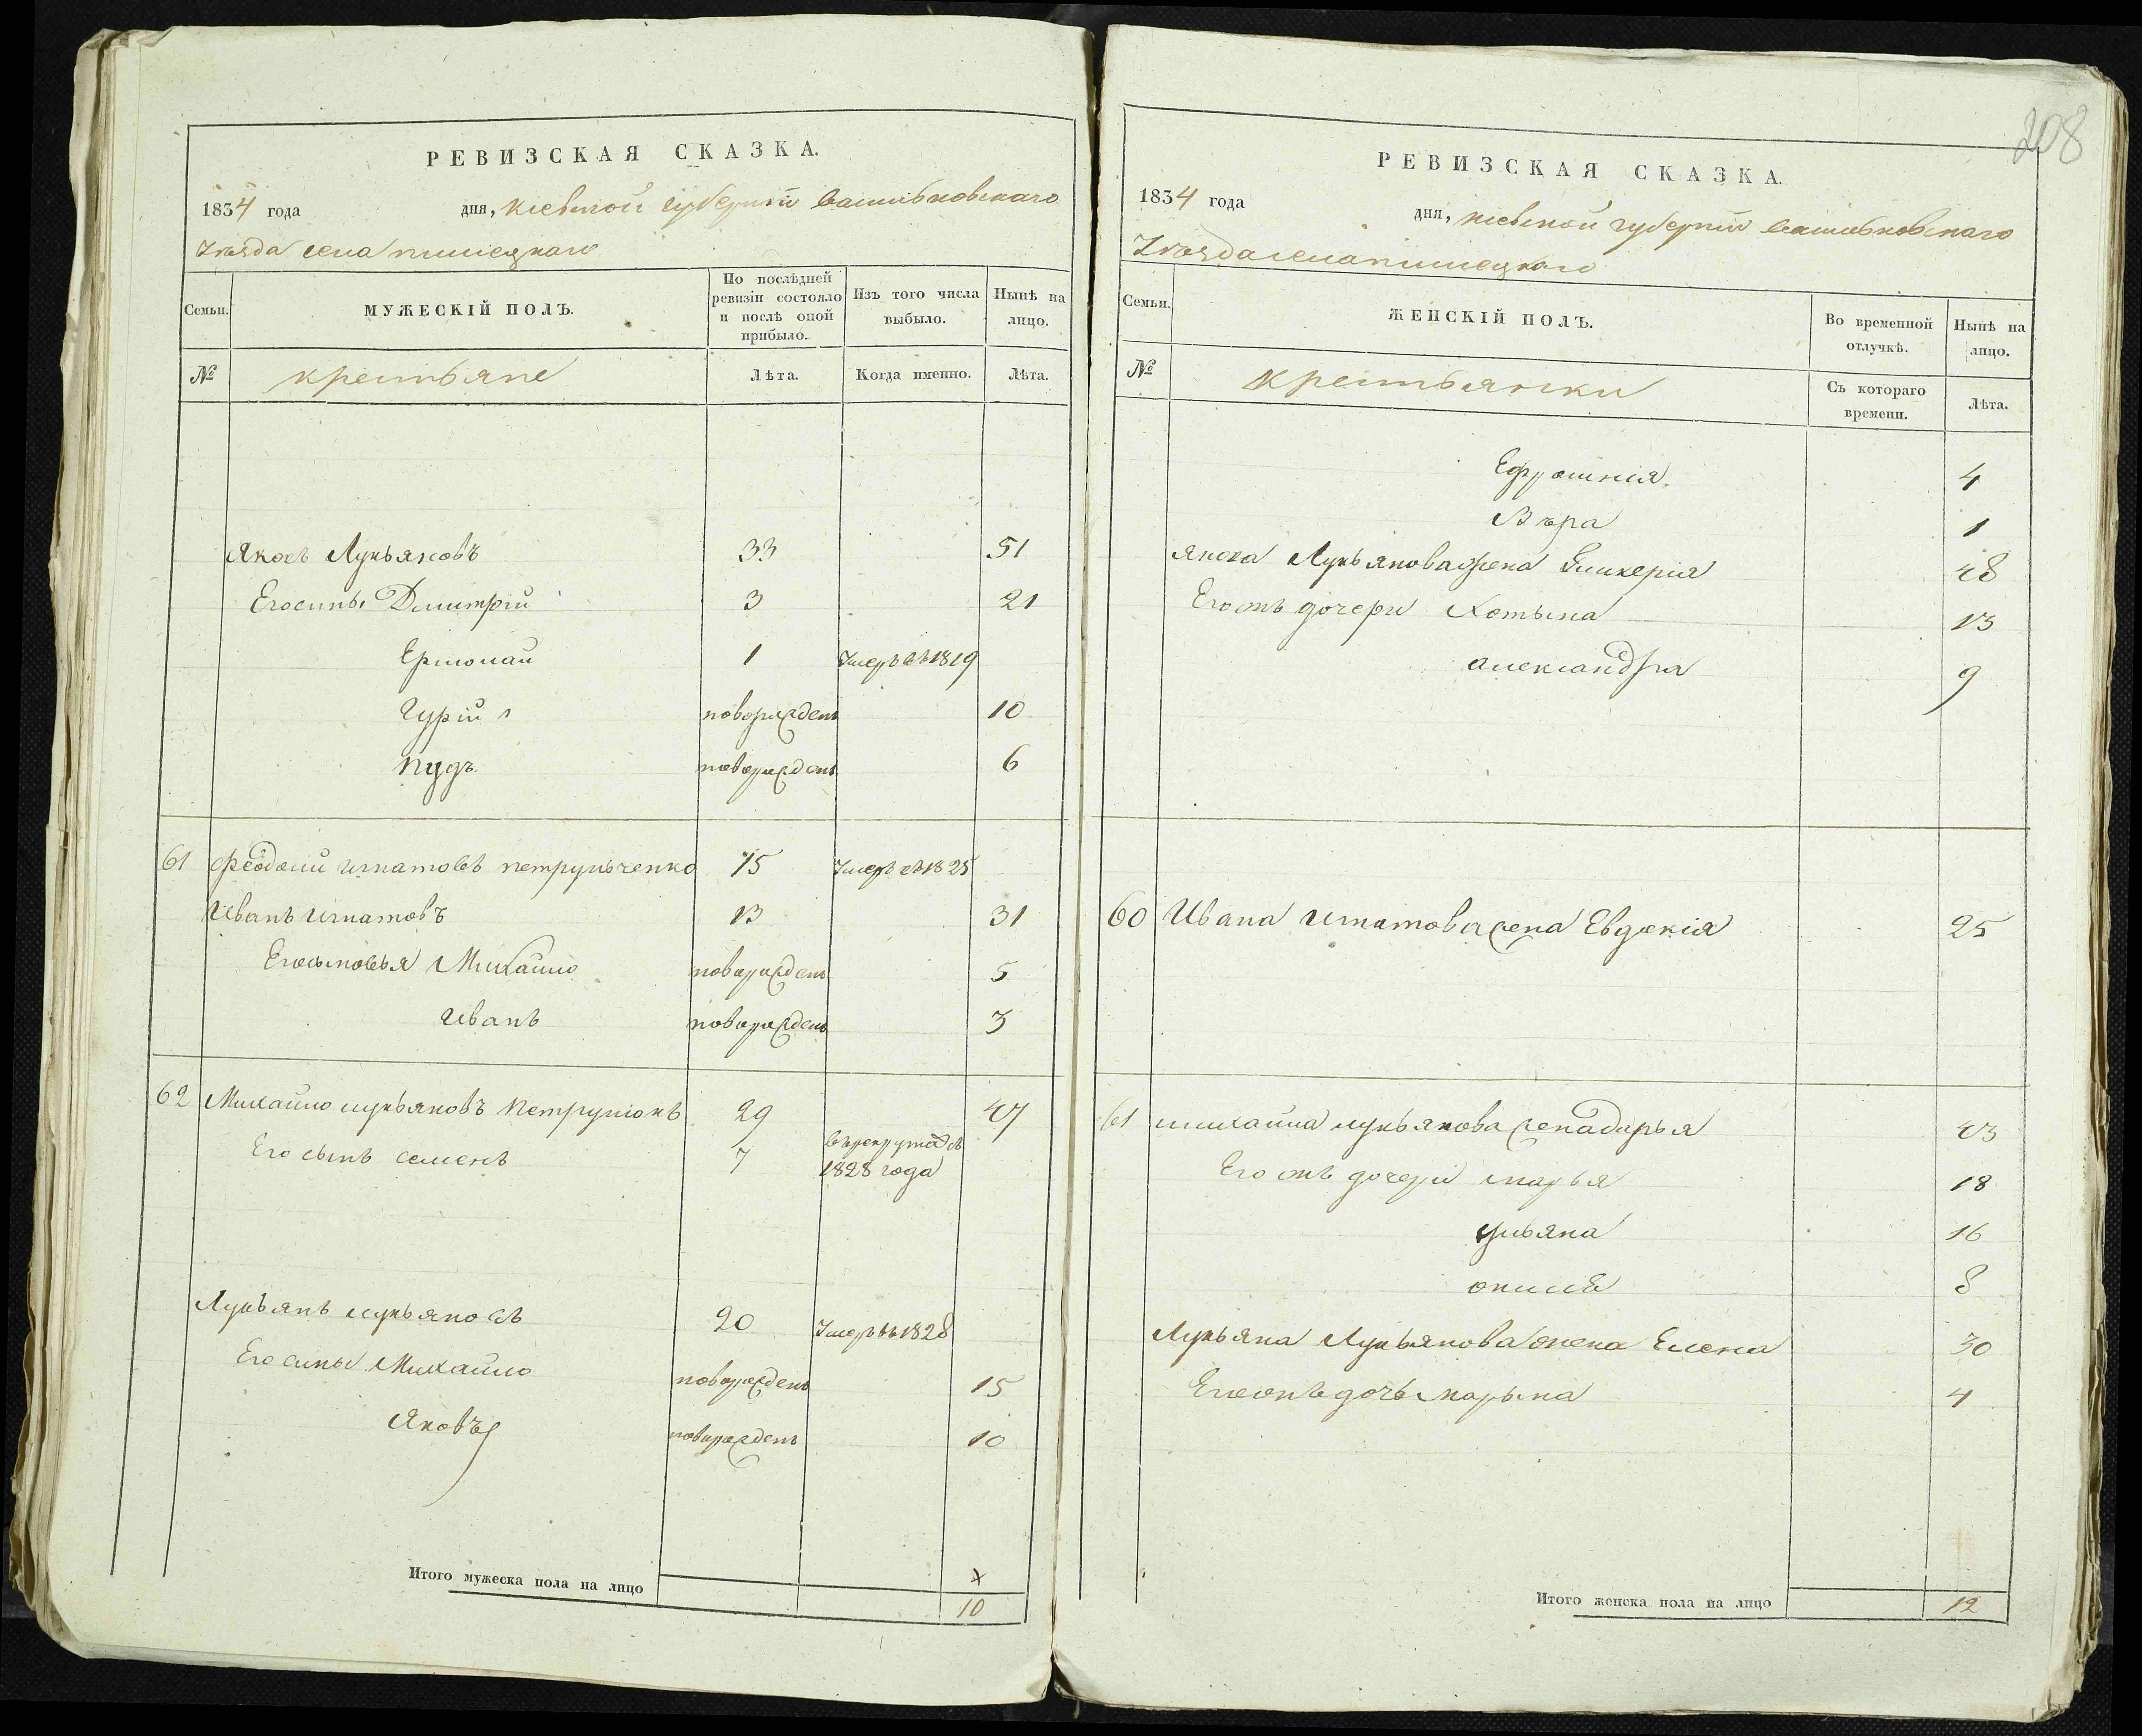 РЕВИЗСКАЯ СКАЗКА.
1834 года дня, Киевской губернiи Васильковскаго
Уѣзда села
Семьи. МУЖЕСКІЙ ПОЛЪ. По послѣдней ревизіи состояло и послѣ оной прибыло. Изъ того числа выбыло. Нынѣ на лицо.
№ крестьяне Лѣта. Когда именно. Лѣта.
Яковъ Лукьяновъ 33 51
Его сины Дмитрій 3 21
Ермолай 1 Умеръ въ 1819
Гурій новорожденъ 10
Пудъ новорожденъ 6
61 Феодосій Игнатовъ Петруньченко 15 Умеръ въ 1825
Иванъ Игнатовъ 13 31
Его сыновья Михайло новорожденъ 5
Иванъ новорожденъ 3
62 Михайло Лукьяновъ 29 47
Его сынъ Семенъ 7 в рекрутахъ 1828 года
Лукьянъ Лукьяновъ 20 Умеръ въ 1828
Его сины Михайло новорожденъ 15
Яковъ новорожденъ 10
Итого мужеска пола на лицо 10
208
РЕВИЗСКАЯ СКАЗКА.
1834 года дня, Киевской губернiи Васильковскаго
Уѣзда села
Семьи. ЖЕНСКІЙ ПОЛЪ. Во временной отлучкѣ. Нынѣ на лицо.
№ крестьянки Съ котораго времени. Лѣта.
Ефросинія 4
Вѣра 1
Якова Лукьянова жена Гликерія 48
Его онъ дочери Хотына 13
Александра 9
60 Ивана Игнатова жена Евдокія 25
61 Михайла Лукьянова жена Дарья 43
Его онъ дочери Марья 18
Ульяна 16
8
Лукьяна Лукьянова жена Елена 30
Его онъ дочь Марына 4
Итого женска пола на лицо 12